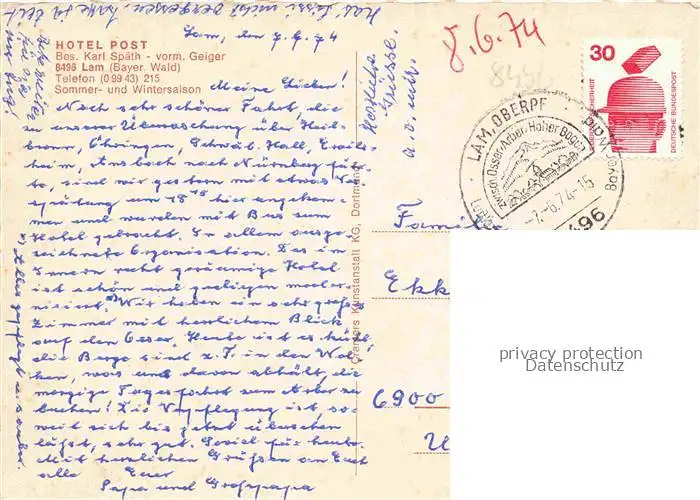 Lam, 7.6.74
HOTEL POST
Bes. Karl Späth - vorm. Geiger
8496 Lam (Bayer. Wald)
Telefon (0 99 43) 215
Sommer- und Wintersaison
Meine Lieben!
Nach sehr schöner Fahrt, die
zu unserer Überraschung über Heil-
bronn, Öhringen, Schwäb. Hall, Crails-
heim, Ansbach nach Nürnberg führ-
te, sind wir gestern mit etwas Ver-
spätung um 18 hier angekom-
men und wurden mit Bus zum
Hotel gebracht. In allem ausge-
zeichnete Organisation. Das im
Innern recht geräumige Hotel
ist schön und gediegen moder-
nisiert. Wir haben ein sehr großes
Zimmer mit herrlichem Blick
auf den Osser. Heute ist es kühl,
die Berge sind z.T. in den Wol-
ken, was uns davon abhält, die
morgige Tagesfahrt zum Arber zu
buchen! Die Verpflegung ist, so-
weit sich bis jetzt übersehen
läßt, sehr gut. Soviel für heute.
Mit herzlichen Grüßen an Euch
alle Euer
Papa und Großpapa
Alles gepflegt u. sauber.
Herzlichste
Grüsse.
8.6.74
8496
Cramers Kunstanstalt KG, Dortmund
LAM, OBERPF
zwisch. Osser-Arber-Hoher Bogen
-7.-6.74-15
8496
30
DEUTSCHE BUNDESPOST
Famil
Ekk
6900
privacy protection
Datenschutz